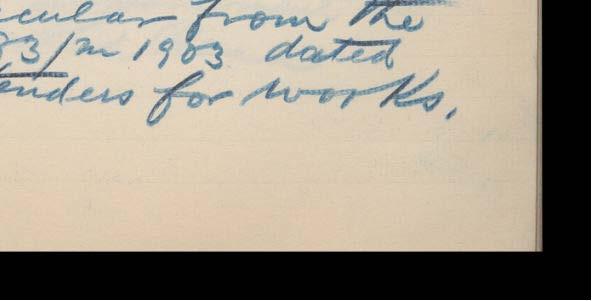 cular from the
83/m 1903 dated
enders for works.